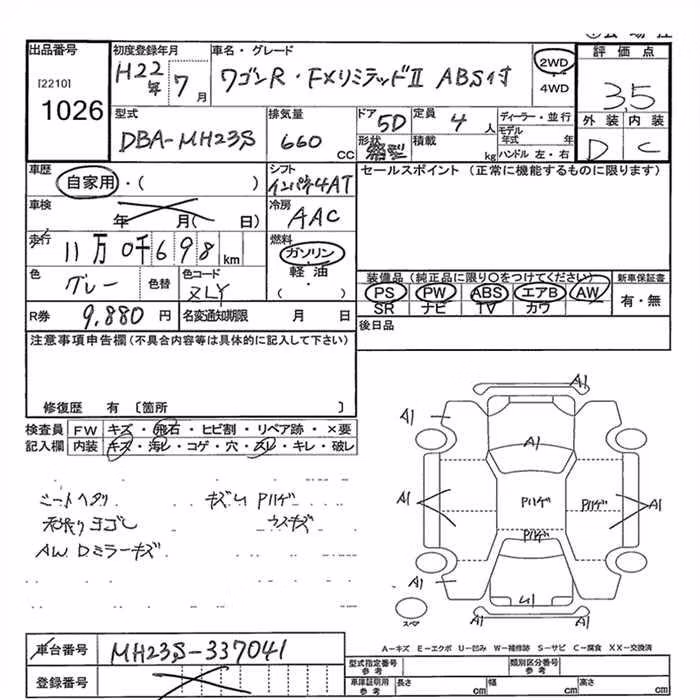 出品番号
[2210]
1026
初度登録年月
H22年 7月
車名・グレード
ワゴンR・FXリミテッドⅡ ABS付
2WD
・
4WD
評価点
3.5
外装 内装
D C
型式
DBA-MH23S
排気量
660 CC
ドア
5D
形状
定員
4人
積載
kg
ディーラー・並行
モデル年式 年
ハンドル 左・右
車歴
自家用・( )
シフト
インパネ4AT
セールスポイント (正常に機能するものに限ります)
車検
年 月( 日)
冷房
AAC
走行
11万0千698km
燃料
ガソリン
軽油
( ・ )
色
グレー
色替
色コード
ZLY
装備品(純正品に限り○をつけてください)
PS PW ABS エアB AW
SR ナビ TV カワ
新車保証書
有・無
R券
9,880円
名変通知期限 月 日
後日品
注意事項申告欄(不具合内容等は具体的に記入して下さい)
修復歴 有 〔箇所 〕
検査員記入欄
FW キズ・飛石・ヒビ割・リペア跡・×要
内装 キズ・汚レ・コゲ・穴・スレ・キレ・破レ
シートヘタリ キズU Pハゲ
内張りヨゴレ ウスキズ
AW Dミラーキズ
A1
A1
A1
A1 Pハゲ Pハゲ A1
Pハゲ
A1 U1 A1
A1
スペア
A-キズ E-エクボ U-凹み W-補修跡 S-サビ C-腐食 XX-交換済
車台番号
MH23S-337041
登録番号
型式指定番号
参考
類別区分番号
参考
車庫証明用
参考
長さ cm 幅 cm 高さ cm